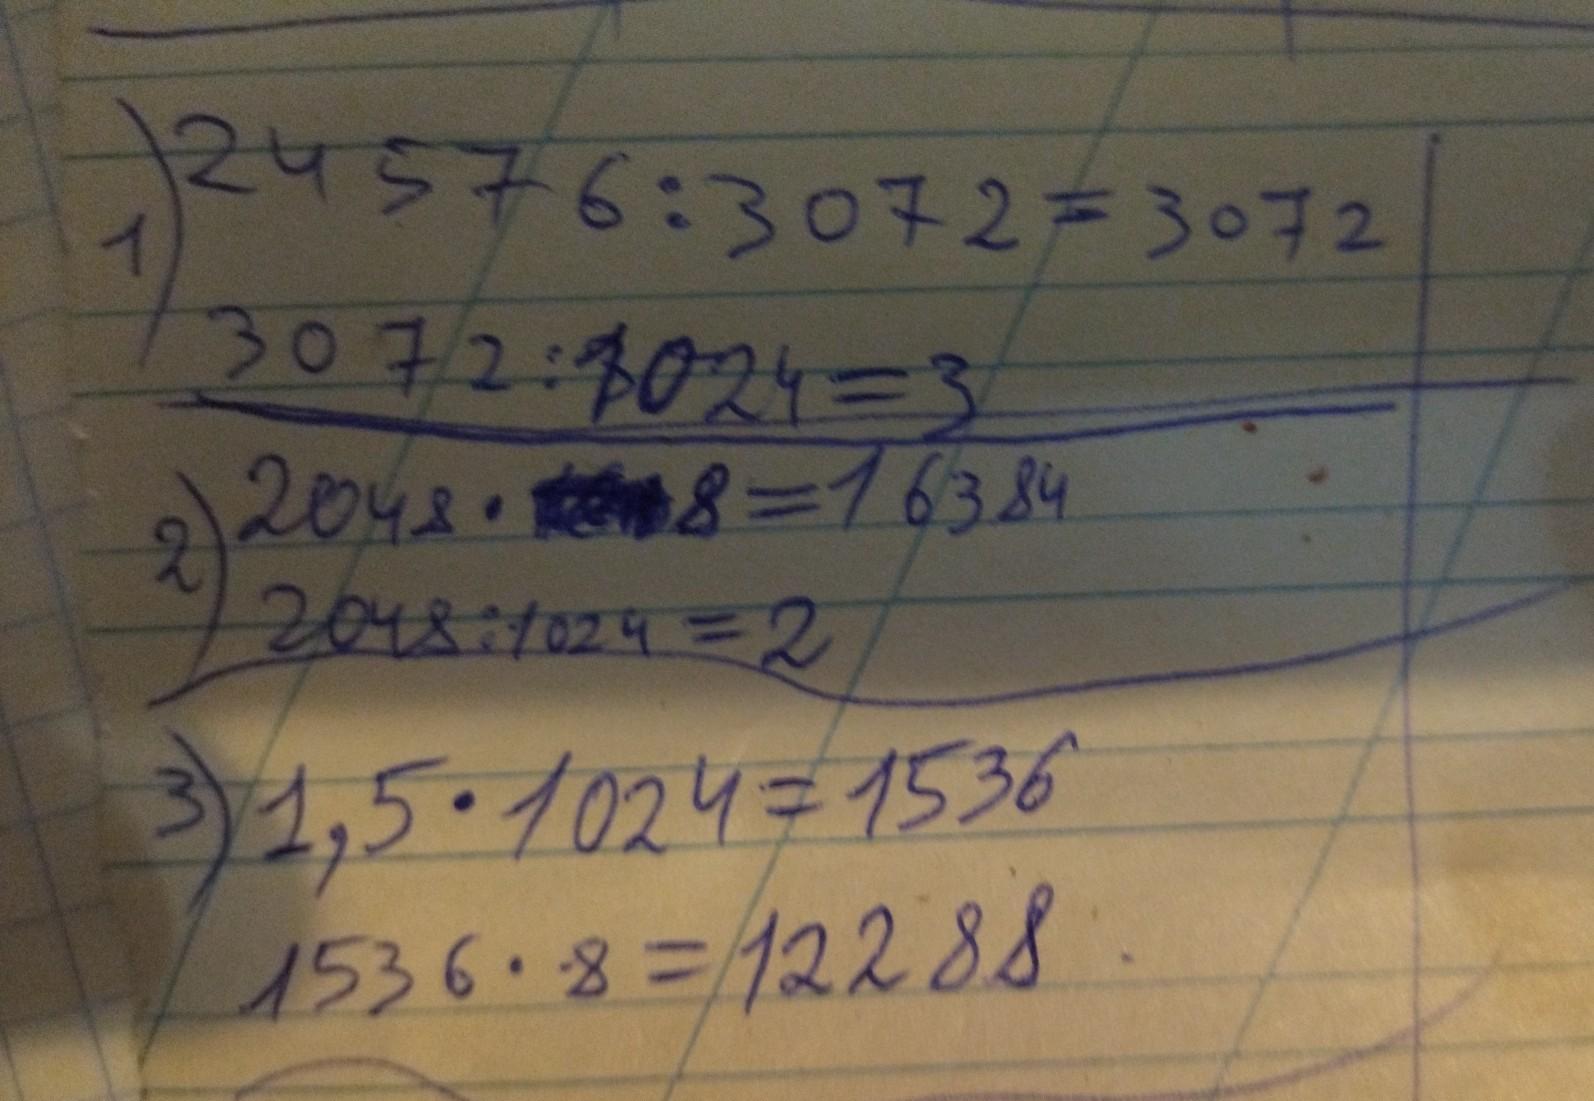 1) 24576:3072=3072
3072:1024=3
2) 2048·8=16384
2048:1024=2
3) 1,5·1024=1536
1536·8=12288